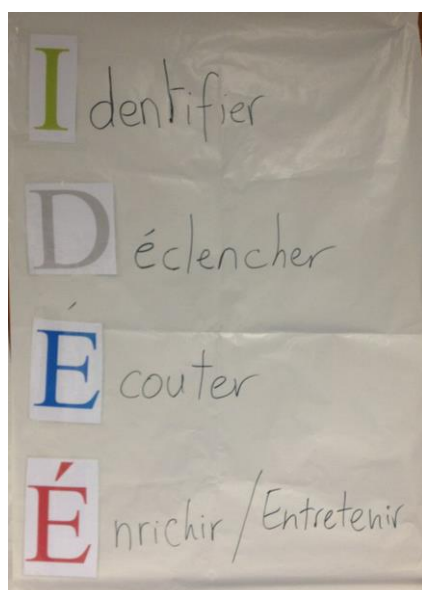 Identifier
Déclencher
Écouter
Énrichir / Entretenir